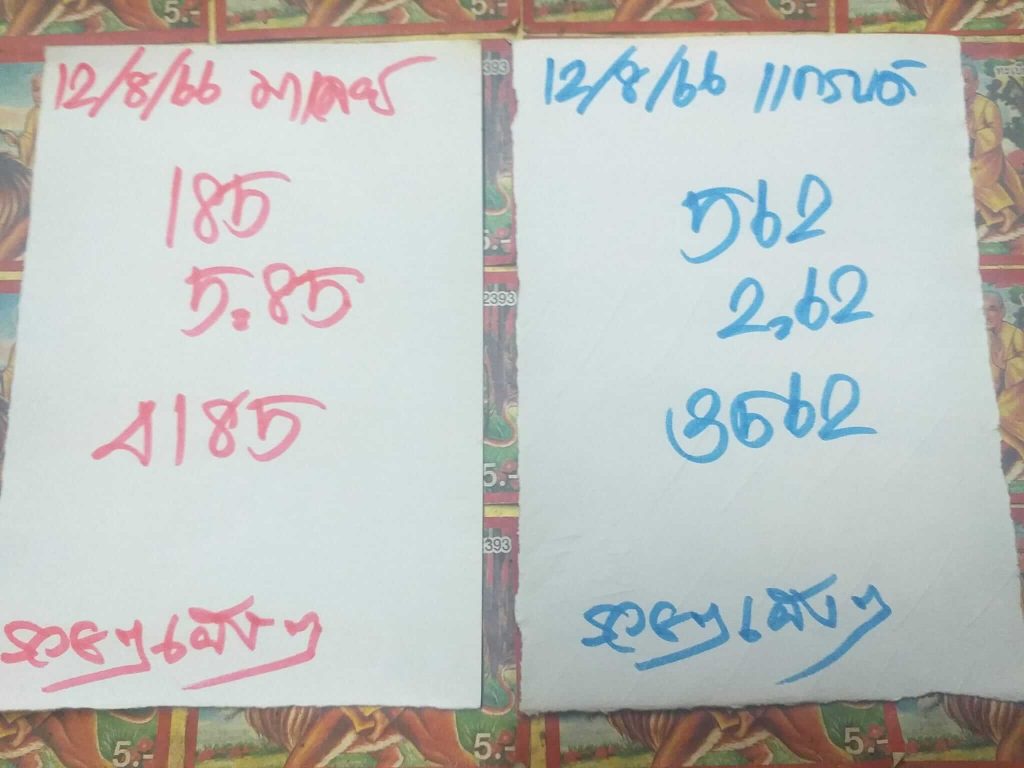 12/8/66 มาเลย์
185
5.85
4185
รวยๆเฮงๆ
12/8/66 แกรนด์
562
2,62
3562
รวยๆเฮงๆ
5.-
5.-
5.-
5.-
5.-
2393
393
393
5.-
5.-